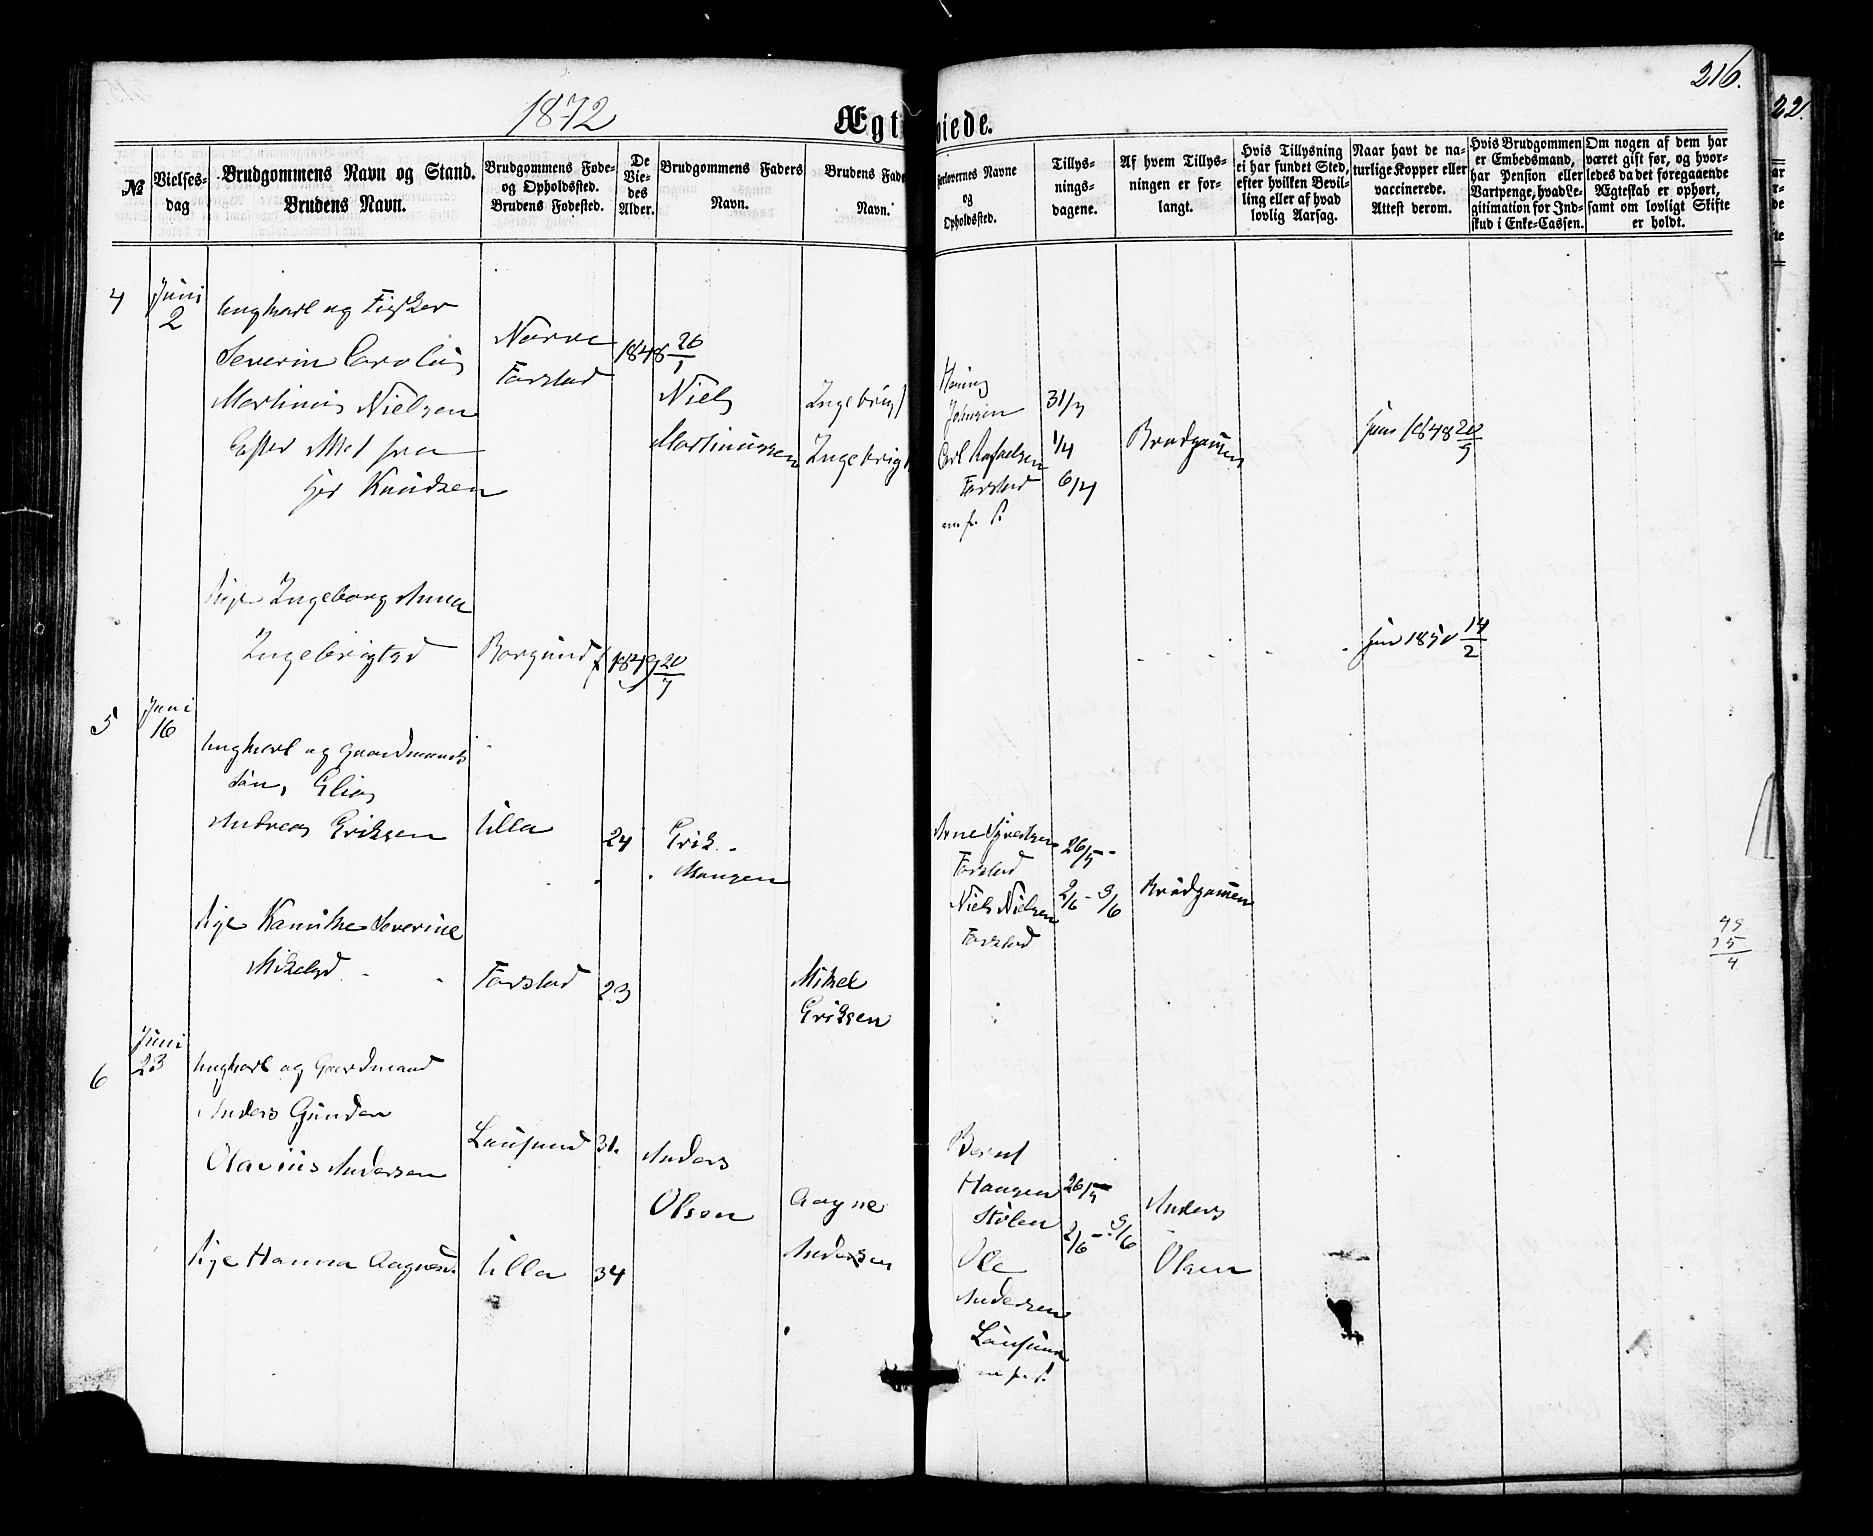 216.
1872
Ægt viede.
22.
№
Vielses-
dag
Brudgommens Navn og Stand.
Brudens Navn.
Brudgommens Føde-
og Opholdssted.
Brudens Fødested.
De
Vie-
des
Alder.
Brudgommens Faders
Navn.
Brudens Fade
Navn.
Forlovernes Navne
og
Opholdssted.
Tillys-
nings-
dagene.
Af hvem Tillys-
ningen er for-
langt.
Hvis Tillysning
ei har fundet Sted,
efter hvilken Bevil-
ling eller af hvad
lovlig Aarsag.
Naar havt de na-
turlige Kopper eller
vaccinerede.
Attest derom.
Hvis Brudgommen
er Embedsmand,
har Pension eller
Vartpenge, hvad Le-
gitimation for Ind-
skud i Enke-Cassen.
Om nogen af dem har
været gift før, og hvor-
ledes da det foregaaende
Ægteskab er ophørt,
samt om lovligt Skifte
er holdt.
4
Juni
2
ungkarl og Fisker
Severin Carolius
Martinus Nielsen
Efter Attest fra
Knudsen
Norve
Farstad
1848 26/1
Niels
Martinussen
Ingebrigt
Ingebrigt
Johnsen
Carl Rafaelsen
Farstad
31/3
1/4
6/4
Brudgommen
1848 20/9
Pige Ingeborg Anna
Ingebrigtsd
Borgund
1849 20/7
1850 14/2
5
Juni
16
ungkarl og gaardmands
søn, Elias
Andreas Eriksen
Ulla
24
Erik
Monsen
Arne Syvertsen
Farstad
Niels Nielsen
Farstad
26/5
2/6 - 9/6
Brudgommen
Pige Kanutke Severine
Mikelsd
Farstad
23
Mikel
Eriksen
6
Juni
23
ungkarl og Gaardmand
Anders Gunder
Olavius Andersen
Lausund
31.
Anders
Olsen
Bernt
Hansen
Støten
Ole
Andersen
Lausund
26/5
2/6 - 9/6
Anders
Olsen
Pige Hanna Aagnesd.
Ulla
34
Aagne
Andersen